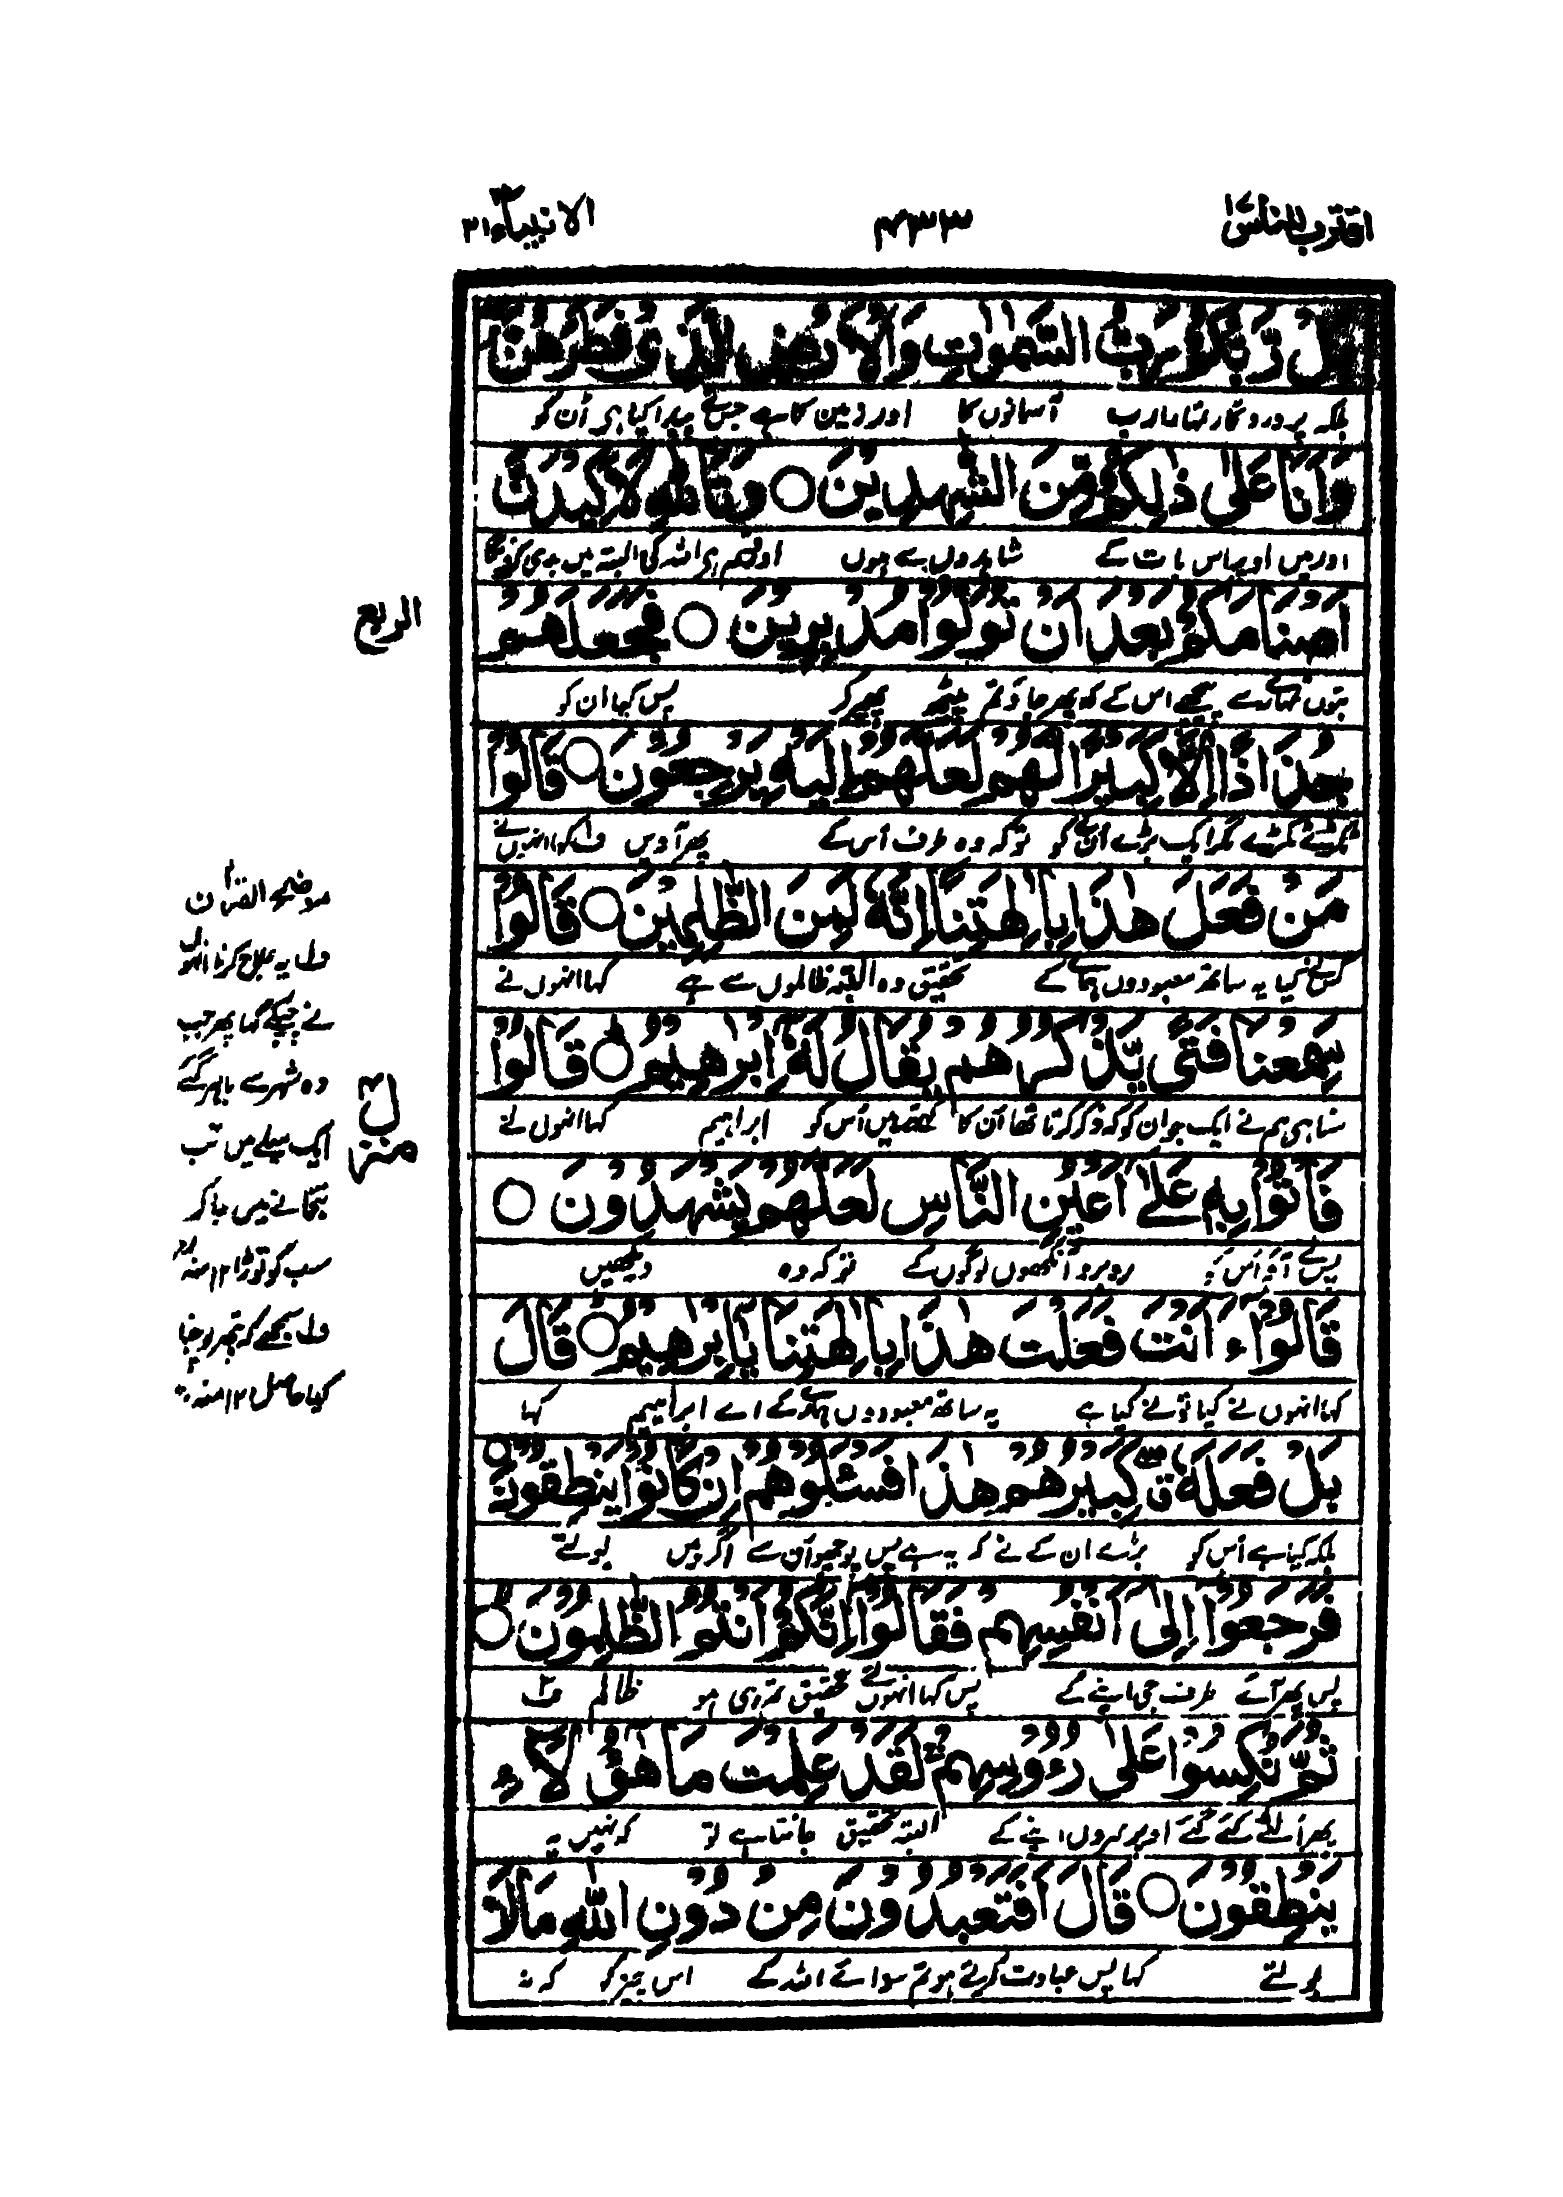 اقترب للناس ١٧
٤٣٣
الانبیاء ٢١
بَلْ رَّبُّكُمْ رَبُّ السَّمٰوٰتِ وَالْاَرْضِ الَّذِیْ فَطَرَهُنَّ
بلکہ پروردگار تمہارا رب آسمانوں کا اور زمین کا ہے جسنے پیدا کیا ہی اُن کو
وَاَنَا عَلٰی ذٰلِكُمْ مِّنَ الشّٰهِدِیْنَ ○ وَتَاللّٰهِ لَاَكِیْدَنَّ
اور میں اوپر اس بات کے شاہدوں سے ہوں اور قسم ہی اللہ کی البتہ میں بدی کرونگا
اَصْنَامَكُمْ بَعْدَ اَنْ تُوَلُّوْا مُدْبِرِیْنَ ○ فَجَعَلَهُمْ
بتوں تمہارے سے پیچھے اس کے کہ پھر جاؤ تم پیٹھ پھیر کر پس کیا ان کو
جُذٰذًا اِلَّا كَبِیْرًا لَّهُمْ لَعَلَّهُمْ اِلَیْهِ یَرْجِعُوْنَ ○ قَالُوْا
ٹکڑے ٹکڑے مگر ایک بڑے اُن کے کو توکہ وہ طرف اُس کے پھر آویں ف کہا انہوں نے
مَنْ فَعَلَ هٰذَا بِاٰلِهَتِنَا اِنَّهٗ لَمِنَ الظّٰلِمِیْنَ ○ قَالُوْا
کس نے کیا یہ ساتھ معبودوں ہمارے کے تحقیق وہ البتہ ظالموں سے ہے کہا انہوں نے
سَمِعْنَا فَتًی یَّذْكُرُهُمْ یُقَالُ لَهٗ اِبْرٰهِیْمُ ○ قَالُوْا
سنا ہی ہم نے ایک جوان کو کہ ذکر کرتا تھا اُن کا کہتے ہیں اُس کو ابراہیم کہا انہوں نے
فَاْتُوْا بِهٖ عَلٰی اَعْیُنِ النَّاسِ لَعَلَّهُمْ یَشْهَدُوْنَ ○
پس لے آؤ اُس کو روبرو آنکھوں لوگوں کے توکہ وہ دیکھیں
قَالُوْا ءَاَنْتَ فَعَلْتَ هٰذَا بِاٰلِهَتِنَا یٰاِبْرٰهِیْمُ ○ قَالَ
کہا انہوں نے کیا تونے کیا ہے یہ ساتھ معبودوں ہمارے کے اے ابراہیم کہا
بَلْ فَعَلَهٗ ق كَبِیْرُهُمْ هٰذَا فَسْـَٔلُوْهُمْ اِنْ كَانُوْا یَنْطِقُوْنَ ○
بلکہ کیا ہے اُس کو بڑے ان کے نے کہ یہ ہے پس پوچھو اُن سے اگر ہیں بولتے
فَرَجَعُوْا اِلٰی اَنْفُسِهِمْ فَقَالُوْا اِنَّكُمْ اَنْتُمُ الظّٰلِمُوْنَ ○
پس پھر آئے طرف جی اپنے کے پس کہا انہوں نے تحقیق تم ہی ہو ظالم ف
ثُمَّ نُكِسُوْا عَلٰی رُءُوْسِهِمْ لَقَدْ عَلِمْتَ مَا هٰؤُلَاءِ
پھر اُلٹے کئے گئے اوپر سروں اپنے کے البتہ تحقیق جانتا ہے تو کہ نہیں یہ
یَنْطِقُوْنَ ○ قَالَ اَفَتَعْبُدُوْنَ مِنْ دُوْنِ اللّٰهِ مَا لَا
بولتے کہا پس عبادت کرتے ہو تم سوائے اللہ کے اس چیز کو کہ نہ
الربع
منزل ٤
موضح القرآن
ف یہ علاج کرنا انہوں
نے چپکے کہا پھر جب
وہ شہر سے باہر گئے
ایک میلے میں تب
بتخانے میں جا کر
سب کو توڑا ١٢ منہ
ف سمجھے کہ پتھر پوجنا
کیا حاصل ١٢ منہ